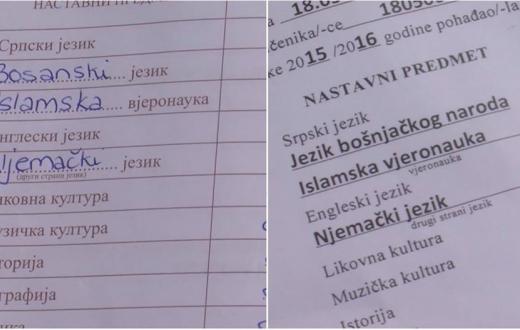 НАСТАВНИ
Српски језик
Bosanski језик
Islamska вјеронаука
Енглески језик
Njemački језик
(други страни језик)
Ликовна култура
Музичка култура
Историја
18.05
180500
čenika/-ce
2015/2016 godine pohađao/-la
NASTAVNI PREDMET
Srpski jezik
Jezik bošnjačkog naroda
Islamska vjeronauka
vjeronauka
Engleski jezik
Njemački jezik
drugi strani jezik
Likovna kultura
Muzička kultura
Istorija